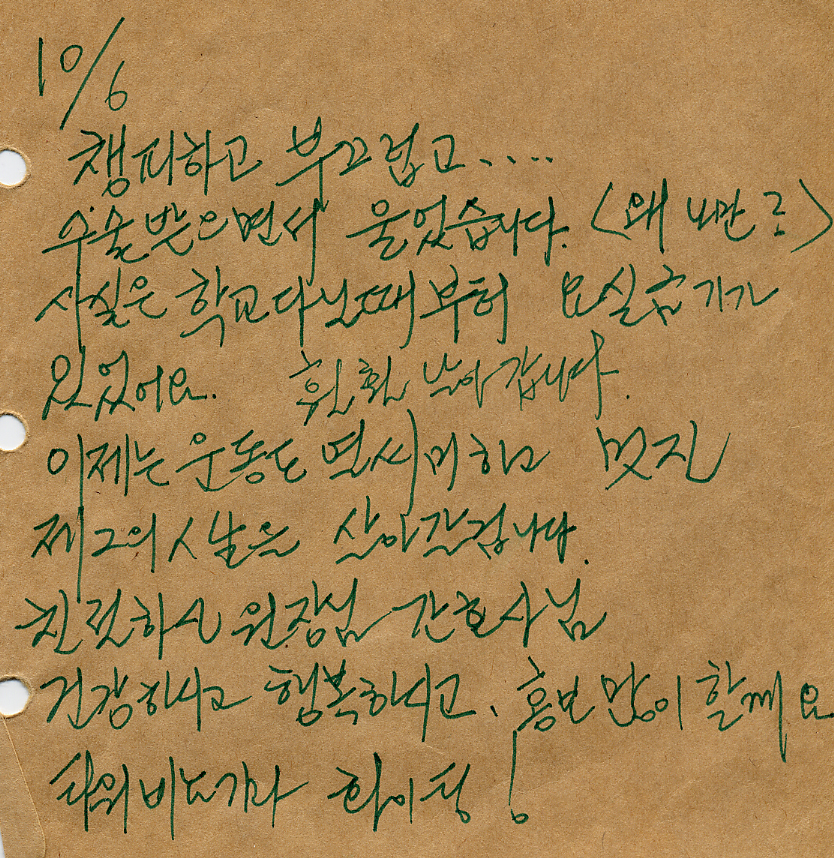 10/6
챙피하고 부끄럽고....
수술받으면서 울었습니다. <왜 나만?>
사실은 학교다닐때부터 요실금기가
있었어요. 훨훨 날아갑니다.
이제는 운동도 열씨미하고 멋진
제2의 시날은 살아갈겁니다.
친절하신 원장님 간호사님
건강하시고 행복하시고. 홍보 많이 할께요
타워비뇨기과 화이팅!